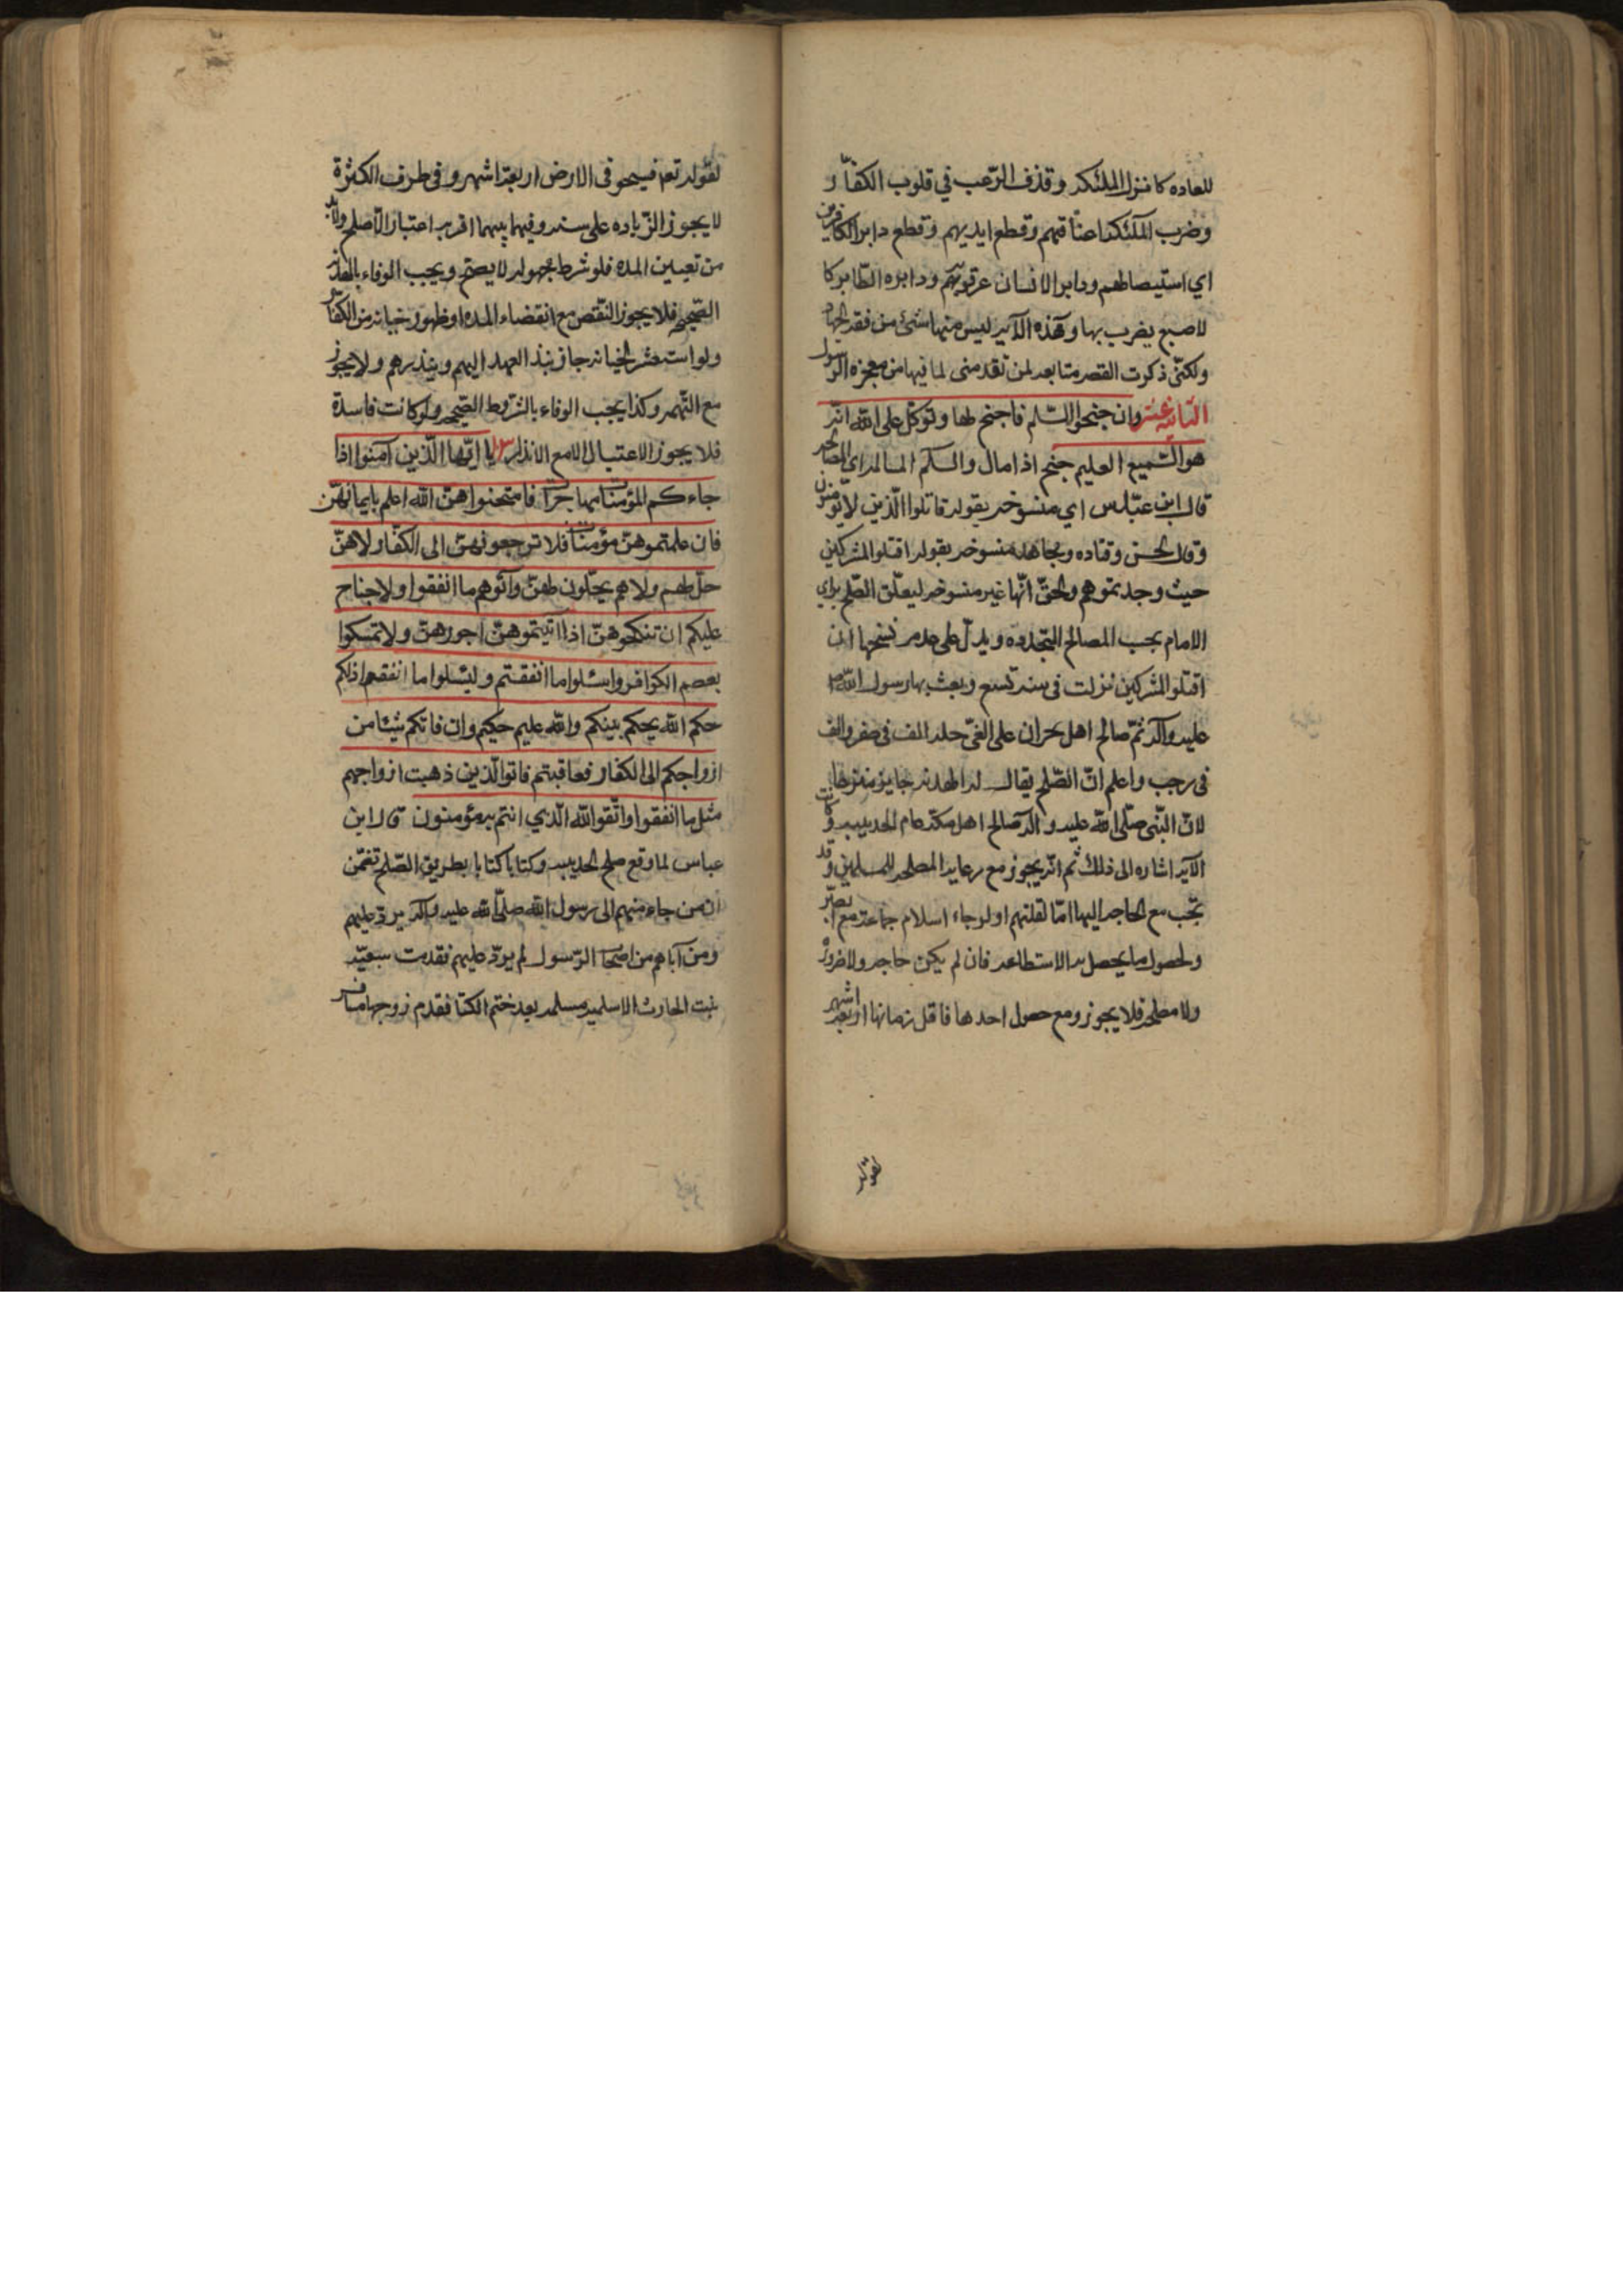 للعاده كا نزول الملئكه و قذف الرّعب في قلوب الكفّار و
وضرب الملئكه اعناقهم و قطع ايديهم و قطع دابر الكافرين
اي استيصالهم ودابر الانسان عرقوبهم ودابره الطّاير كا
لاصبع يضرب بها وهذه الآيه ليس منها شئ من فقه الجهاد
ولكنّى ذكرت القصه متابعه لمن تقدمنى لما فيها من معجزه الرسول
الثانيه عشر وان جنحوا للسّلم فاجنح لها وتوكّل على الله انّه
هو السّميع العليم جنح اذا مال والسلم المسالمه اي المصالحه
قال ابن عبّاس اي منسوخه بقوله قاتلوا الّذين لا يؤمنون
وقال الحسن وقتاده ومجاهد منسوخه بقوله اقتلوا المشركين
حيث وجدتموهم والحقّ انّها غير منسوخه ليعلّق الصّلح براي
الامام بحسب المصالح المتجدده ويدلّ على عدم نسخها ان
اقتلوا المشركين نزلت فى سنه تسع وبعث بها رسول الله ص
عليه وآله ثمّ صالح اهل نجران على الفىّ حله الف فى صفر والف
فى رجب واعلم انّ الصّلح يقال له الهدنه جايز منزها
لانّ النّبى صلّى الله عليه و آله صالح اهل مكه عام الحديبيه وكانت
الآيه اشاره الى ذلك ثم انّه يجوز مع رعايه المصلحه للمسلمين وقد
تجّب مع الحاجه اليها امّا لقلتهم او لرجاء اسلام جماعه مع
ولحصول ما يحصل به الاستطاعه فان لم يكن حاجه ولا ضروره
ولا مصلحه فلا يجوز ومع حصول احدها فاقل زمانها اربعه اشهر
لقوله
لقوله تعم فسيحو فى الارض اربعه اشهر و فى طرف الكثرة
لا يجوز الزّياده على سنه وفيما بينهما اقرب اعتبار الأصلح ولا بد
من تعيين المده فلو شرط مجهوله لا يصح ويجب الوفاء بالهدنه
الصّحيحه فلا يجوز النّقض مع انقضاء المده او ظهور خيانه من الكفّار
ولو استشعر الخيانه جاز نبذ العهد اليهم وينذرهم ولا يجوز
مع التّهمه وكذا يجب الوفاء بالشّروط الصّحيحه ولو كانت فاسدة
فلا يجوز الاعتيال الا مع الانذار يا ايّها الّذين آمنوا اذا
جاءكم المؤمنات مهاجرات فامتحنوا هنّ الله اعلم بايمانهنّ
فان علمتموهنّ مؤمنات فلا ترجعونهنّ الى الكفّار لا هنّ
حلّ لهم ولا هم يحلّون لهنّ وآتوهم ما انفقوا ولا جناح
عليكم ان تنكحوهنّ اذا اتيتموهنّ اجورهنّ ولا تمسكوا
بعصم الكوافر واسئلوا ما انفقتم وليسئلوا ما انفقوا ذلكم
حكم الله يحكم بينكم والله عليم حكيم وان فاتكم شيئا من
ازواجكم الى الكفار فعاقبتم فاتوا الّذين ذهبت ازواجهم
مثل ما انفقوا واتّقوا الله الّذي انتم به مؤمنون قال ابن
عباس لما وقع صلح الحديبيه وكتابا كتابا بطريق الصّلح تضمّن
ان من جاء منهم الى رسول الله صلّى الله عليه وآله يردّ عليهم
ومن آباهم من اصحا الرّسول لم يردّ عليهم فقدمت سبعيّه
بنت الحارث الاسلميه مسلمه بعد ختم الكتا فقدم زوجها مسافر